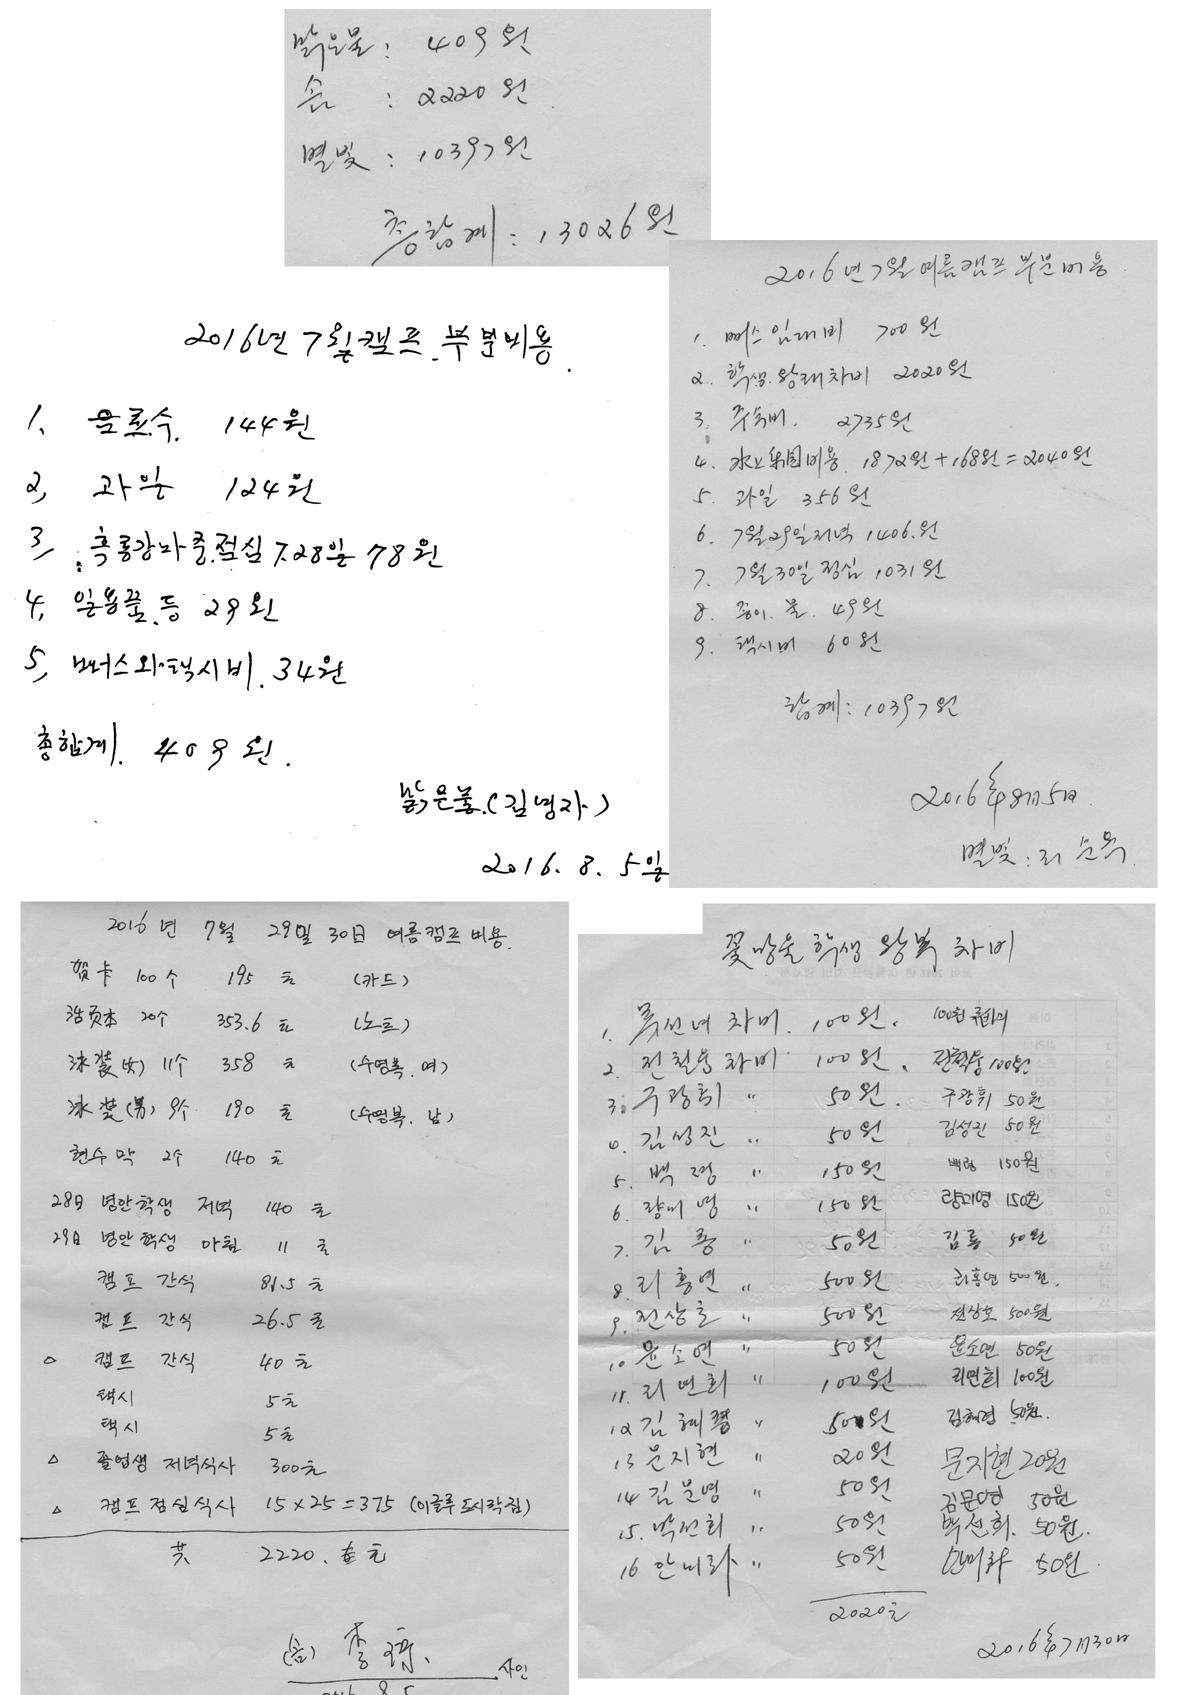 맑은물: 409원
솜 : 2220원
별빛 : 10397원
총합계 : 13026원
2016년 7월 여름캠프 부분비용
1. 뻐스임대비 700원
2. 학생.왕래차비 2020원
3. 주숙비. 2735원
4. 水上乐园비용 1872원+168원=2040원
5. 과일 356원
6. 7월29일저녁 1406.원
7. 7월30일 점심 1031원
8. 종이.물. 49원
9. 택시비 60원
합계: 10397원
2016年8月5日
별빛:리
2016년 7월캠프.부분비용.
1. 음료수. 144원
2, 과일 124원
3, 흑룡강 점심 7.28일 78원
4, 일용품.등 29원
5, 뻐스와.택시비. 34원
총합계. 409원.
맑은물.(김명자)
2016. 8. 5일
2016년 7월 29일 30日 여름캠프비용.
贺卡 100个 195元 (카드)
活页本 20个 353.6元 (노트)
泳装(女) 11个 358元 (수영복.여)
泳装(男) 9个 190元 (수영복.남)
현수막 2个 140元
28日 녕안학생 저녁 140元
29日 녕안학생 아침 11元
캠프 간식 81.5元
캠프 간식 26.5元
△ 캠프 간식 40元
택시 5元
택시 5元
△ 졸업생 저녁식사 300元
△ 캠프점심식사 15×25=375 (이글루도시락집)
共 2220. 元
(솜) 李 사인
꽃망울 학생 왕복 차비
1. 차비. 100원. 100원
2. 전철용차비 100원. 100원
3. 주광휘 〃 50원. 주광휘 50원
4. 김성진 〃 50원 김성진 50원
5. 백령 〃 150원 백령 150원
6. 량미영 〃 150원 량미영 150원
7. 김룡 〃 50원 김룡 50원
8. 리홍연 〃 500원 리홍연 500원.
9. 전상호 〃 500원 전상호 500원
10 윤소연 〃 50원 윤소연 50원
11. 리연희 〃 100원 리연희 100원
12 김혜령 〃 50원 김혜령 50원.
13 문지현 〃 20원 문지현 20원
14 김문영 〃 50원 김문영 50원
15. 박선희 〃 50원 박선희. 50원.
16 안미화 〃 50원 안미화 50원.
2020元
2016年7月30日